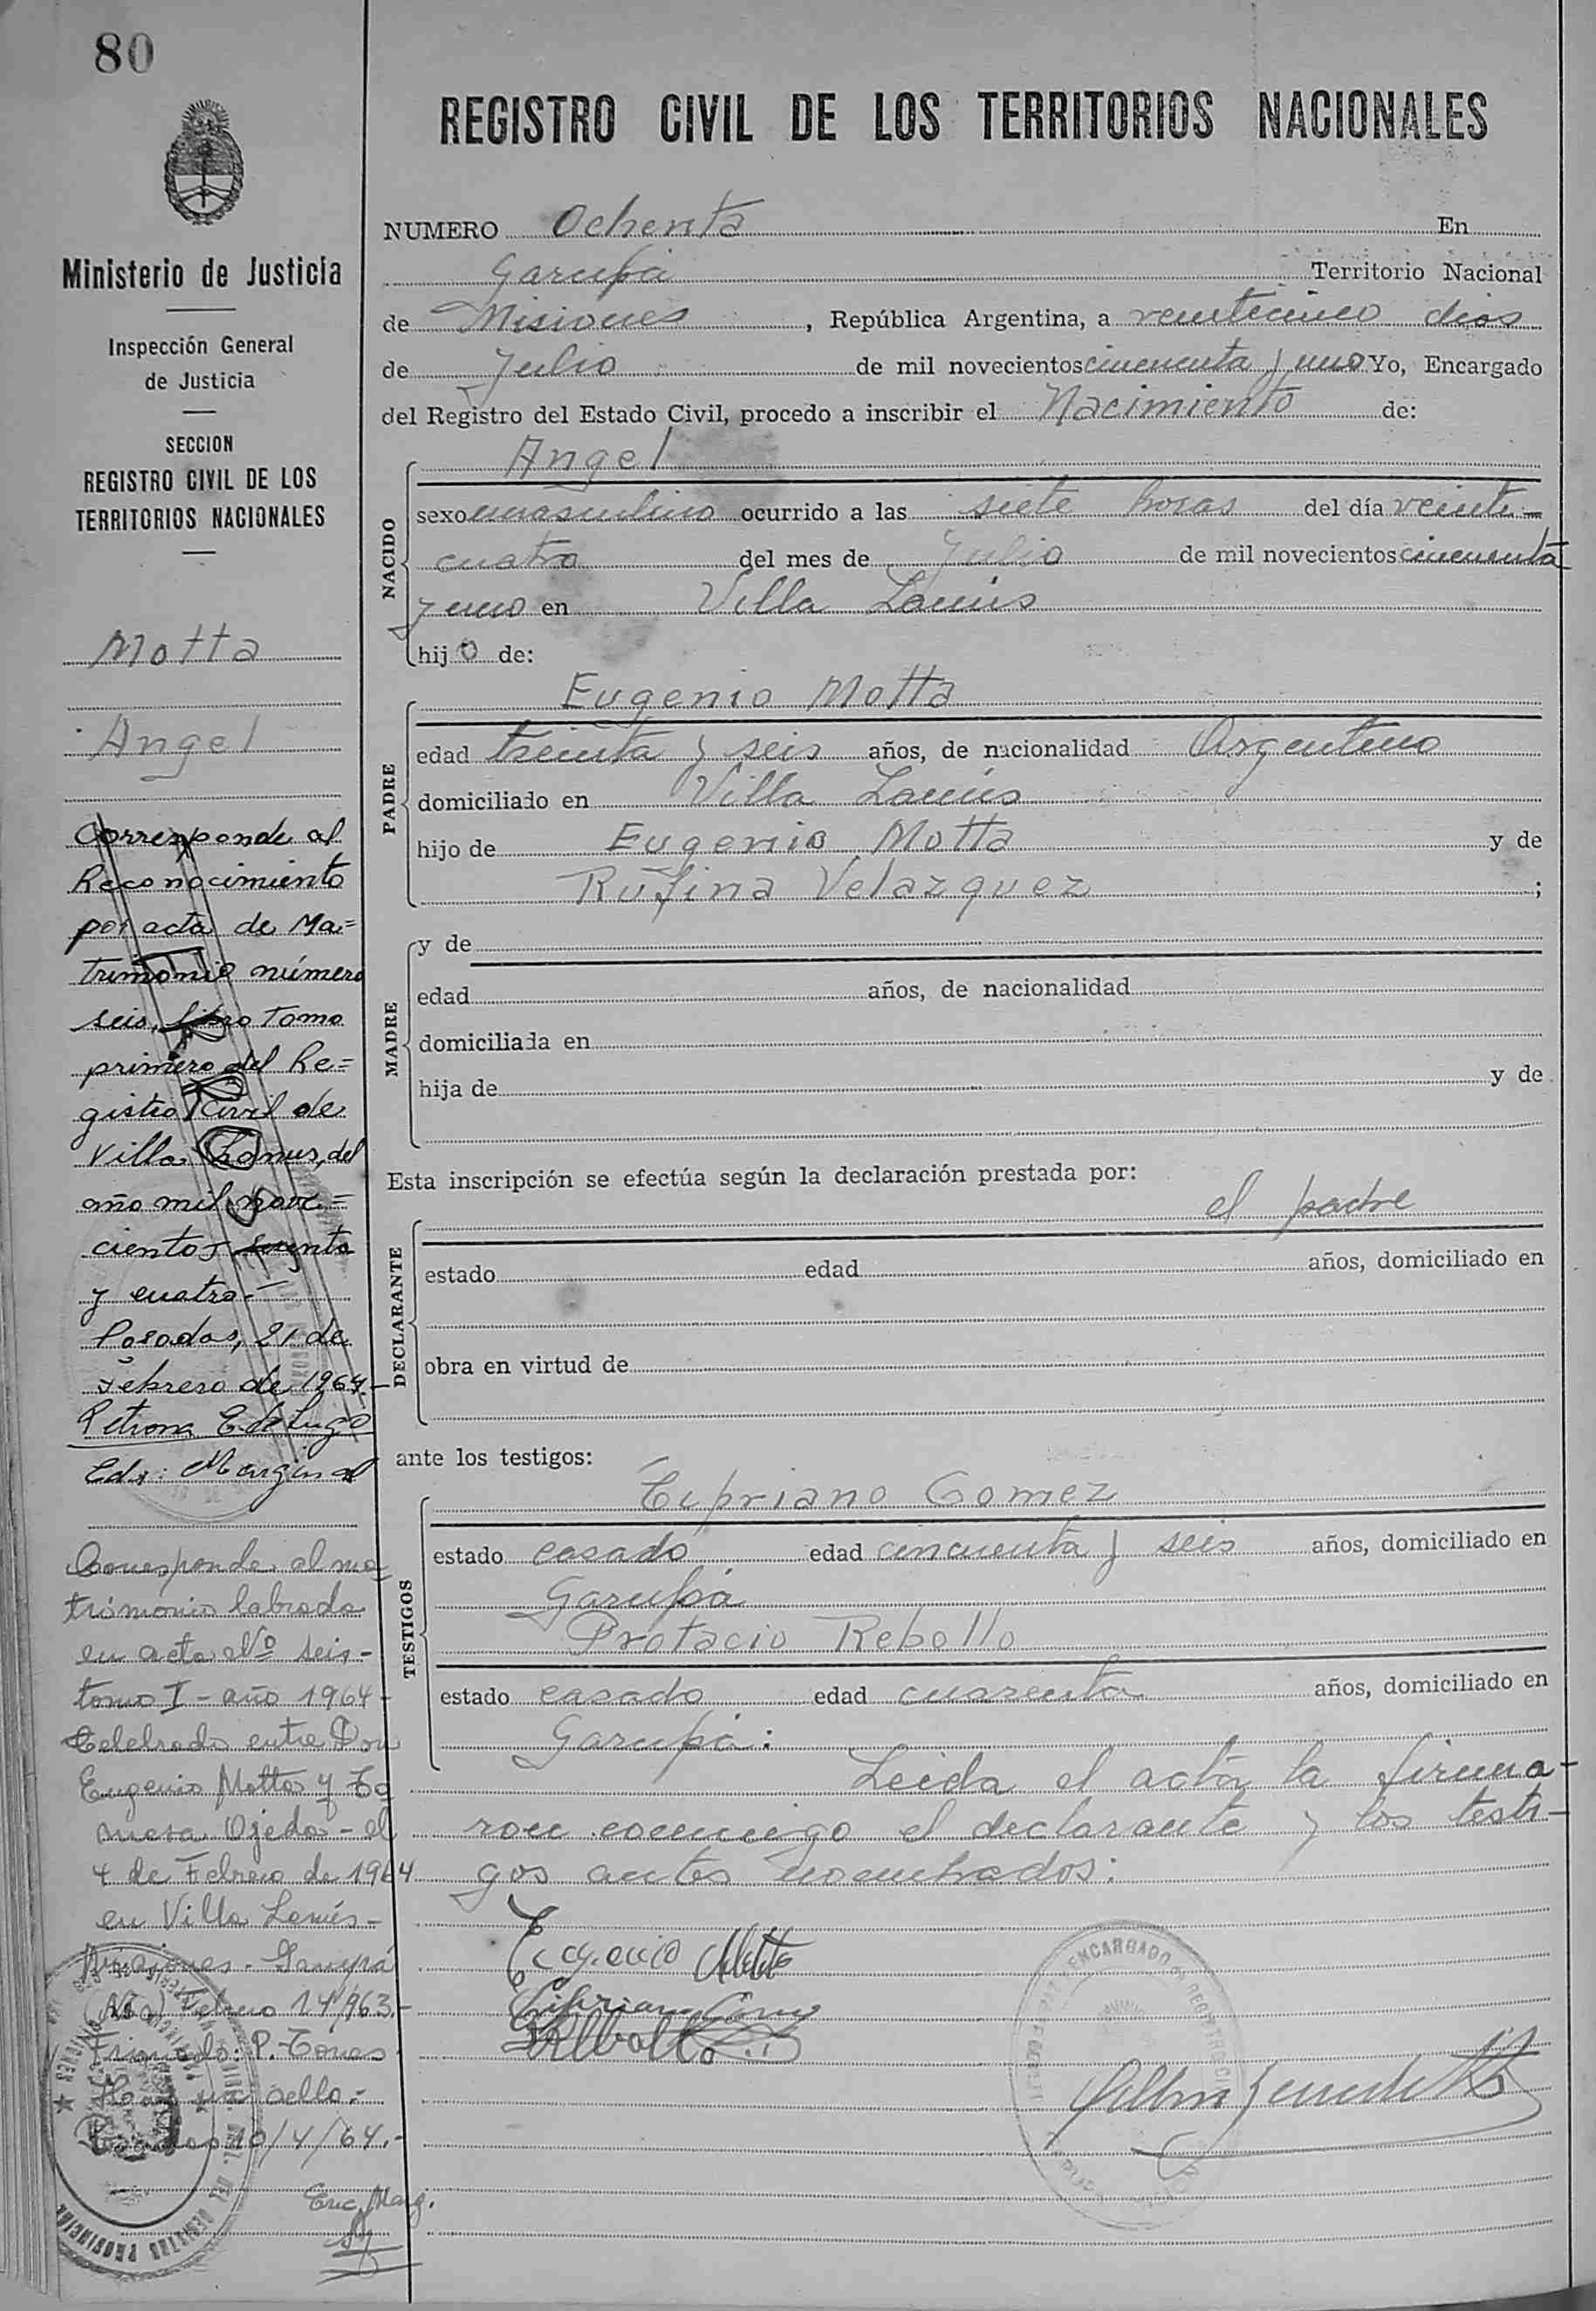 80
Ministerio de Justicia
Inspección General
de Justicia
SECCION
REGISTRO CIVIL DE LOS
TERRITORIOS NACIONALES
Motta
Angel
Corresponde al
Reconocimiento
por acta de Ma=
trimonio número
seis, libro Tomo
primero del Re=
gistro Civil de
Villa Lanus, del
año mil nove=
cientos sesenta
y cuatro.-
Posadas, 21 de
Febrero de 1964.-
Petrona E. de Lugo
Marginal
Corresponde al ma
trimonio labrado
en acta Nº seis-
tomo I - año 1964-
Celebrado entre Don
Eugenio Motta y
Ojeda - el
4 de Febrero de 1964
en Villa Lanús-
Misiones.-
Febrero 14/963.-
Firmado: P.
Hay un sello.-
10/4/64.-
Enc. Marg.
REGISTRO CIVIL DE LOS TERRITORIOS NACIONALES
NUMERO Ochenta En
Garupá Territorio Nacional
de Misiones, República Argentina, a veinticinco dias
de Julio de mil novecientos cincuenta y uno Yo, Encargado
del Registro del Estado Civil, procedo a inscribir el Nacimiento de:
Angel
NACIDO
sexo masculino ocurrido a las siete horas del día veinti-
cuatro del mes de Julio de mil novecientos cincuenta
y uno en Villa Lanús
hijo de:
PADRE
Eugenio Motta
edad treinta y seis años, de nacionalidad Argentino
domiciliado en Villa Lanús
hijo de Eugenio Motta y de
Rufina Velazquez ;
MADRE
y de
edad años, de nacionalidad
domiciliada en
hija de y de
Esta inscripción se efectúa según la declaración prestada por:
el padre
DECLARANTE
estado edad años, domiciliado en
obra en virtud de
ante los testigos:
TESTIGOS
Cipriano Gomez
estado casado edad cincuenta y seis años, domiciliado en
Garupá
Protacio Rebollo
estado casado edad cuarenta años, domiciliado en
Garupá:
Leida el acta la firma-
ron conmigo el declarante y los testi-
gos antes nombrados:
Eugenio Motta
Cipriano Gomez
Rebollo
ENCARGADO